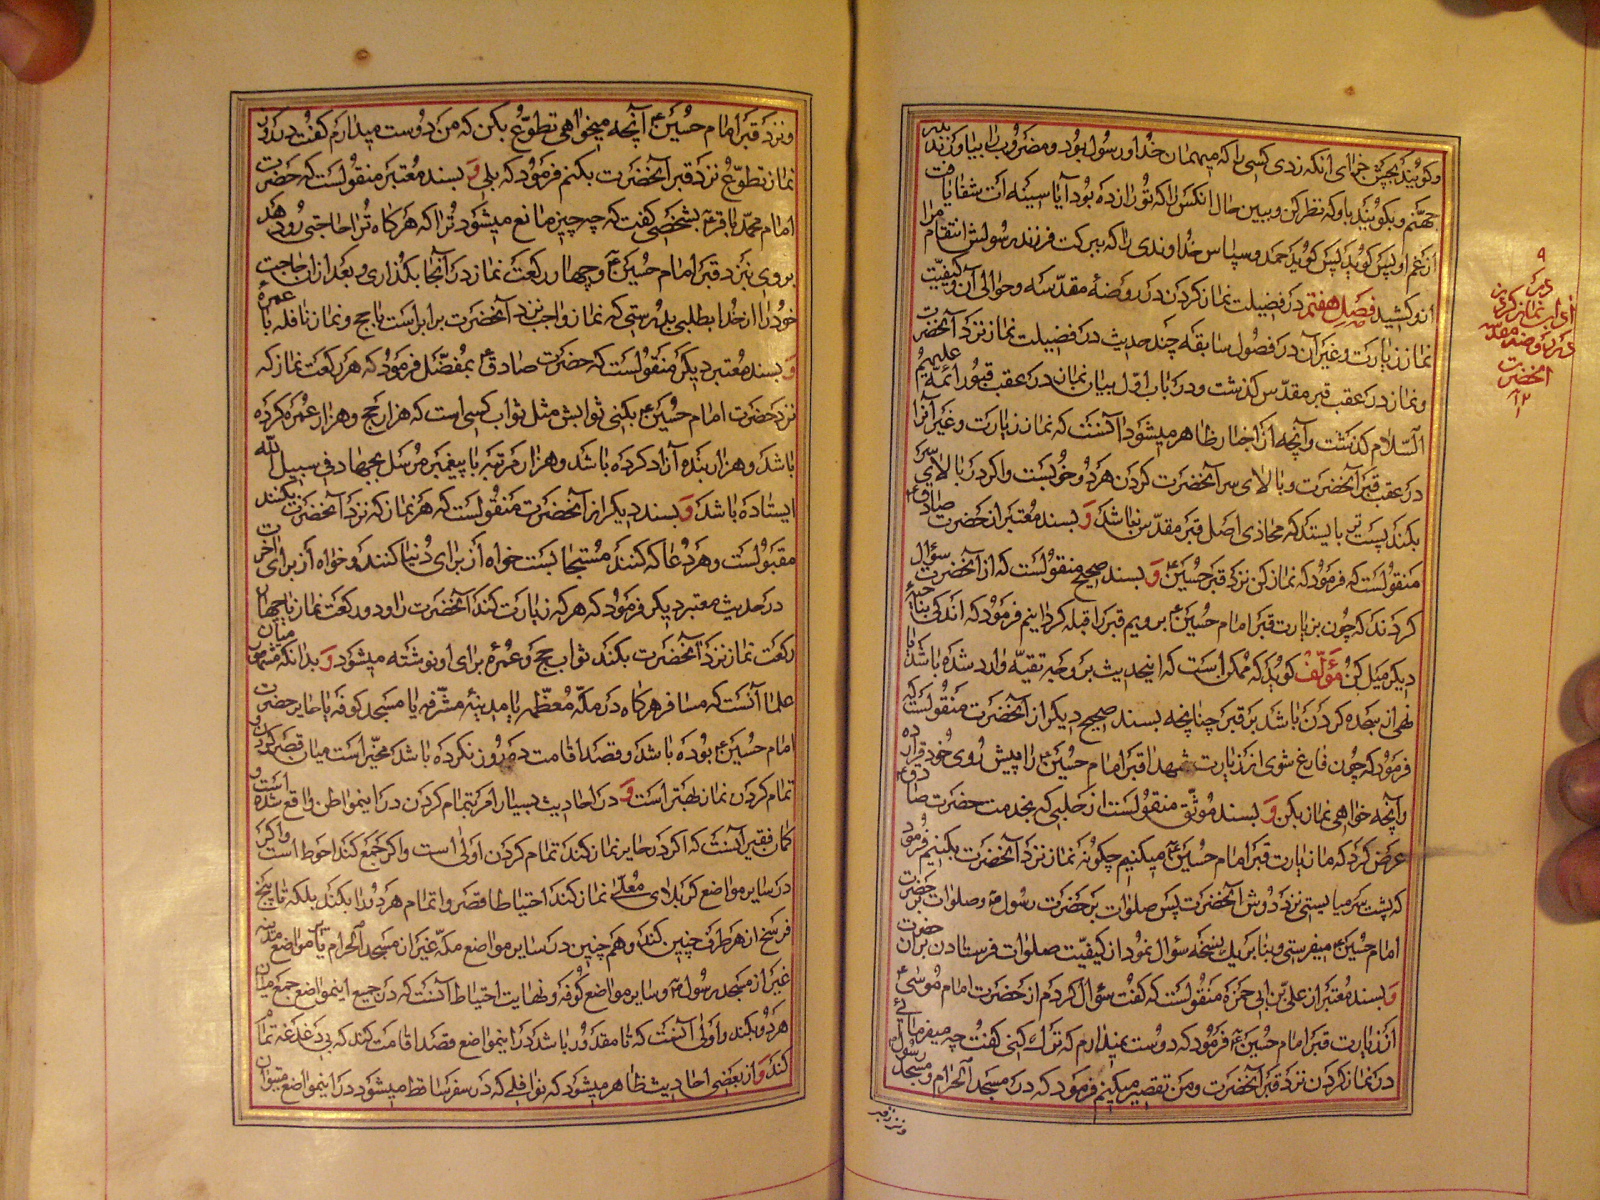 و کویند بچش خمای انکه زدی کسی را که میهمان خدا و رسول بود و مضروب را بیاورند بدر
جهنم و بکویند باو که نظر کن و ببین حال انکس را که تو را زده بود آیا سینه ات شفا یافت
از غم او پس کوید حمد و سپاس خداوندی را که ببرکت فرزند رسولش انتقام مرا
از و کشید فصل هفتم در فضیلت نماز کردن در روضهٔ مقدسه و حوالی آن و کیفیت
نماز زیارت و غیر آن در فصول سابقه چند حدیث در فضیلت نماز نزد آنحضرت
و نماز در عقب قبر مقدس کذشت و در باب اول بیان نماز در عقب قبور ائمه علیهم
السلام کذشت و آنچه از اخبار ظاهر میشود آنست که نماز زیارت و غیر آنرا
در عقب قبر آنحضرت و بالای سر آنحضرت کردن هر دو خوبست و اکر در بالای سر
بکند پس تر بایستد که محاذی اصل قبر مقدس نباشد و بسند معتبر از حضرت صادق ع
منقولست که فرمود که نماز کن نزد قبر حسین ع و بسند صحیح منقولست که از آنحضرت سؤال
کردند که چون بزیارت قبر امام حسین ع برویم قبر را قبله کردانیم فرمود که اندکی بناحیهٔ
دیکر میل کن مؤلف کوید که ممکن است که اینحدیث بر وجه تقیه وارد شده باشد یا
نهی از سجده کردن باشد بر قبر چنانچه بسند صحیح دیکر از آنحضرت منقولست که
فرمود که چون فارغ شوی از زیارت شهدا قبر امام حسین ع را پیش روی خود قرار ده
و آنچه خواهی نماز بکن و بسند موثق منقولست از حلبی که بخدمت حضرت صادق ع
عرض کرد که ما زیارت قبر امام حسین ع میکنیم چکونه نماز نزد آنحضرت بکنیم فرمود
که پشت سر میایستی نزد دوش آنحضرت پس صلوات بر حضرت رسول ص و صلوات بر حضرت
امام حسین ع میفرستی و بنا بر یک نسخه سؤال نمود از کیفیت صلوات فرستادن بر آن حضرت
و بسند معتبر از علی بن ابی حمزه منقولست که کفت سؤال کردم از حضرت امام موسی ع
از زیارت قبر امام حسین ع فرمود که دوست نمیدارم که ترک کنی کفت چه میفرمائی
در نماز کردن نزد قبر آنحضرت و من تقصیر میکنم فرمود که در مسجد الحرام و مسجد رسول ص
و نزد قبر
۹
در
آداب نماز کردن
در روضه مقدسه
آنحضرت
۱۲
و نزد قبر امام حسین ع آنچه میخواهی تطوع بکن که من دوست میدارم کفت در روز
نماز تطوع نزد قبر آنحضرت بکنم فرمود که بلی و بسند معتبر منقولست که حضرت
امام محمد باقر ع بشخصی کفت که چه چیز مانع میشود ترا که هرکاه ترا حاجتی رو دهد
بروی بنزد قبر امام حسین ع و چهار رکعت نماز در آنجا بکذاری و بعد از ان حاجت
خود را از خدا بطلبی بدرستی که نماز واجب نزد آنحضرت برابر است با حج و نماز نافله با عمره
و بسند معتبر دیکر منقولست که حضرت صادق ع بمفضل فرمود که هر رکعت نماز که
نزد حضرت امام حسین ع بکنی ثوابش مثل ثواب کسی است که هزار حج و هزار عمره کرده
باشد و هزار بنده آزاد کرده باشد و هزار مرتبه با پیغمبر مرسل بجهاد فی سبیل الله
ایستاده باشد و بسند دیکر از آنحضرت منقولست که هر نماز که نزد آنحضرت بکنند
مقبولست و هر دعا که کنند مستجابست خواه از برای دنیا کنند و خواه از برای آخرت
در حدیث معتبر دیکر فرمود که هر که زیارت کند آنحضرت را و دو رکعت نماز یا چهار
رکعت نماز نزد آنحضرت بکند ثواب حج و عمره برای او نوشته میشود و بدانکه مشهور میان
علما آنست که مسافر هرکاه در مکهٔ معظمه یا مدینهٔ مشرفه یا مسجد کوفه یا حایر حضرت
امام حسین ع بوده باشد و قصد اقامت ده روز نکرده باشد مخیر است میان قصر کردن و
تمام کردن نماز بهتر است و در احادیث بسیار امر بتمام کردن در اینمواطن واقع شده است و
کمان فقیر آنست که اکر در حایر نماز کند تمام کردن اولی است و اکر جمع کند احوط است و اکر
در سایر مواضع کربلای معلی نماز کند احتیاطا قصر و اتمام هر دو را بکند بلکه تا پنج
فرسخ از هر طرف چنین کند و هم چنین در سایر مواضع مکه غیر از مسجد الحرام و سایر مواضع مدینه
غیر از مسجد رسول ص و سایر مواضع کوفه و نهایت احتیاط آنست که در جمیع اینمواضع جمع میان
هر دو بکند و اولی آنست که تا مقدور باشد در اینمواضع قصد اقامت کند که بی دغدغه تمام
کند و از بعضی احادیث ظاهر میشود که نوافلی که در سفر ساقط میشود در اینمواضع میتوان